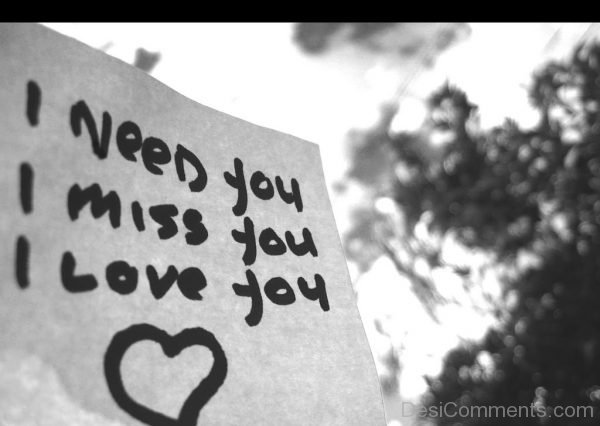 I Need you
I miss you
I Love you
DesiComments.com